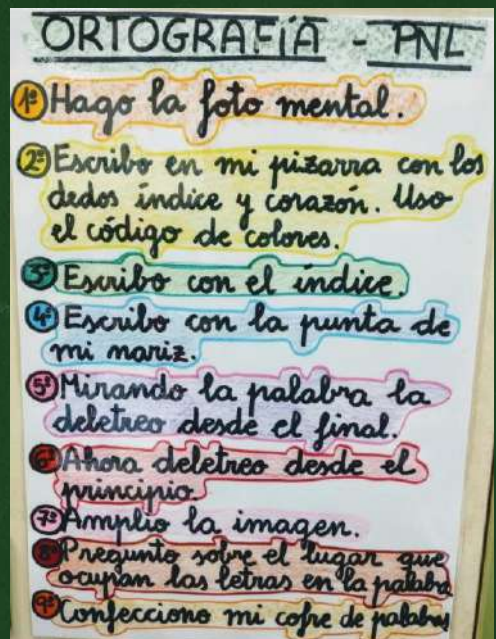 ORTOGRAFÍA - PNL
1º Hago la foto mental.
2º Escribo en mi pizarra con los
dedos índice y corazón. Uso
el código de colores.
3º Escribo con el índice.
4º Escribo con la punta de
mi nariz.
5º Mirando la palabra la
deletreo desde el final.
6º Ahora deletreo desde el
principio.
7º Amplio la imagen.
8º Pregunto sobre el lugar que
ocupan las letras en la palabra
9º Confecciono mi cofre de palabras